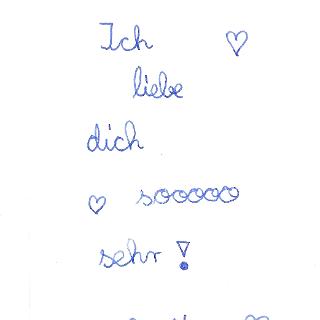 Ich ♡
liebe
dich
♡ sooooo
sehr!